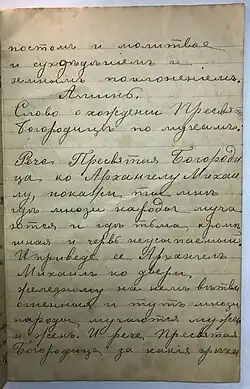 постомъ и молитвае
и сухоѣдѣніемъ и
земнымъ поклоненіемъ,
Аминь.
Слово о хожденіи Пресвят
Богородицы по мучѣнію.
Рече Пресвятая Богороди
ца ко Архангелу Михаи
лу, покажи ти мнѣ
гдѣ мнози народы муча
ются и гдѣ тма кром
шная и червь неусыпаемый
И приведе ее Архангелъ
Михаилъ ко двери
желѣзному на немъ
огненныя и тутъ мнози
народы мучаются мужи
и женъ. И рече, Пресвятая
Богородица за какія грѣхи